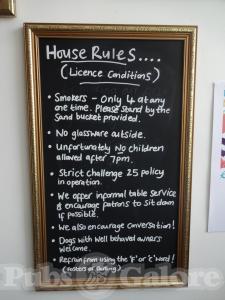 House Rules....
(Licence Conditions)
• Smokers - Only 4 at any
one time. Please stand by the
sand bucket provided.
• No glassware outside.
• Unfortunately No children
allowed after 7pm.
• Strict challenge 25 policy
in operation.
• We offer informal table service
& encourage patrons to sit down
if possible.
• We also encourage conversation!
• Dogs with well behaved owners
welcome.
• Refrain from using the 'F' or 'C' word!
Pubs Galore